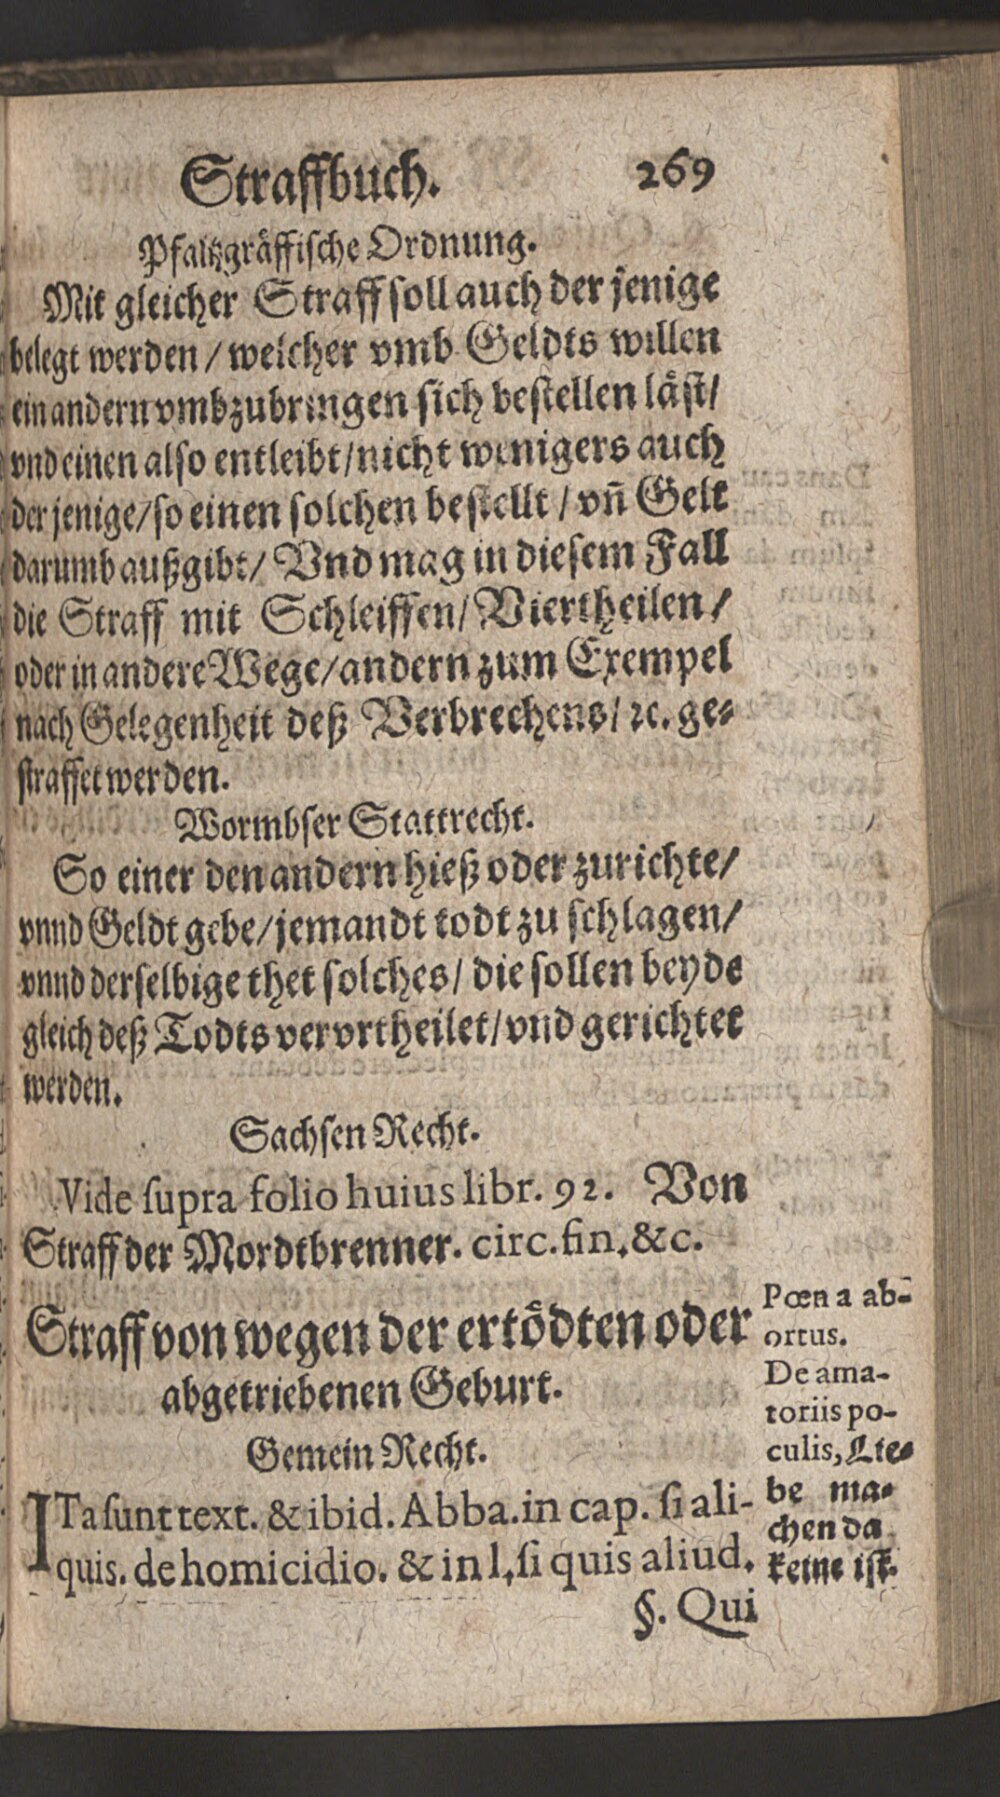 Straffbuch. 269
Pfaltzgräffische Ordnung.
Mit gleicher Straff soll auch der jenige
belegt werden / welcher vmb Geldts willen
ein andern vmbzubringen sich bestellen läst /
vnd einen also entleibt / nicht wenigers auch
der jenige / so einen solchen bestellt / vn̄ Gelt
darumb außgibt / Vnd mag in diesem Fall
die Straff mit Schleiffen / Viertheilen /
oder in andere Wege / andern zum Exempel
nach Gelegenheit deß Verbrechens / ꝛc. ge-
straffet werden.
Wormbser Stattrecht.
So einer den andern hieß oder zurichte /
vnnd Geldt gebe / jemandt todt zu schlagen /
vnnd derselbige thet solches / die sollen beyde
gleich deß Todts vervrtheilet / vnd gerichtet
werden.
Sachsen Recht.
Vide supra folio huius libr. 92. Von
Straff der Mordtbrenner. circ. fin. &c.
Straff von wegen der ertödten oder
abgetriebenen Geburt.
Gemein Recht.
ITa sunt text. & ibid. Abba. in cap. si ali-
quis. de homicidio. & in l. si quis aliud.
§. Qui
Pœna ab-
ortus.
De ama-
toriis po-
culis, Lie-
be ma-
chen da
keine ist.